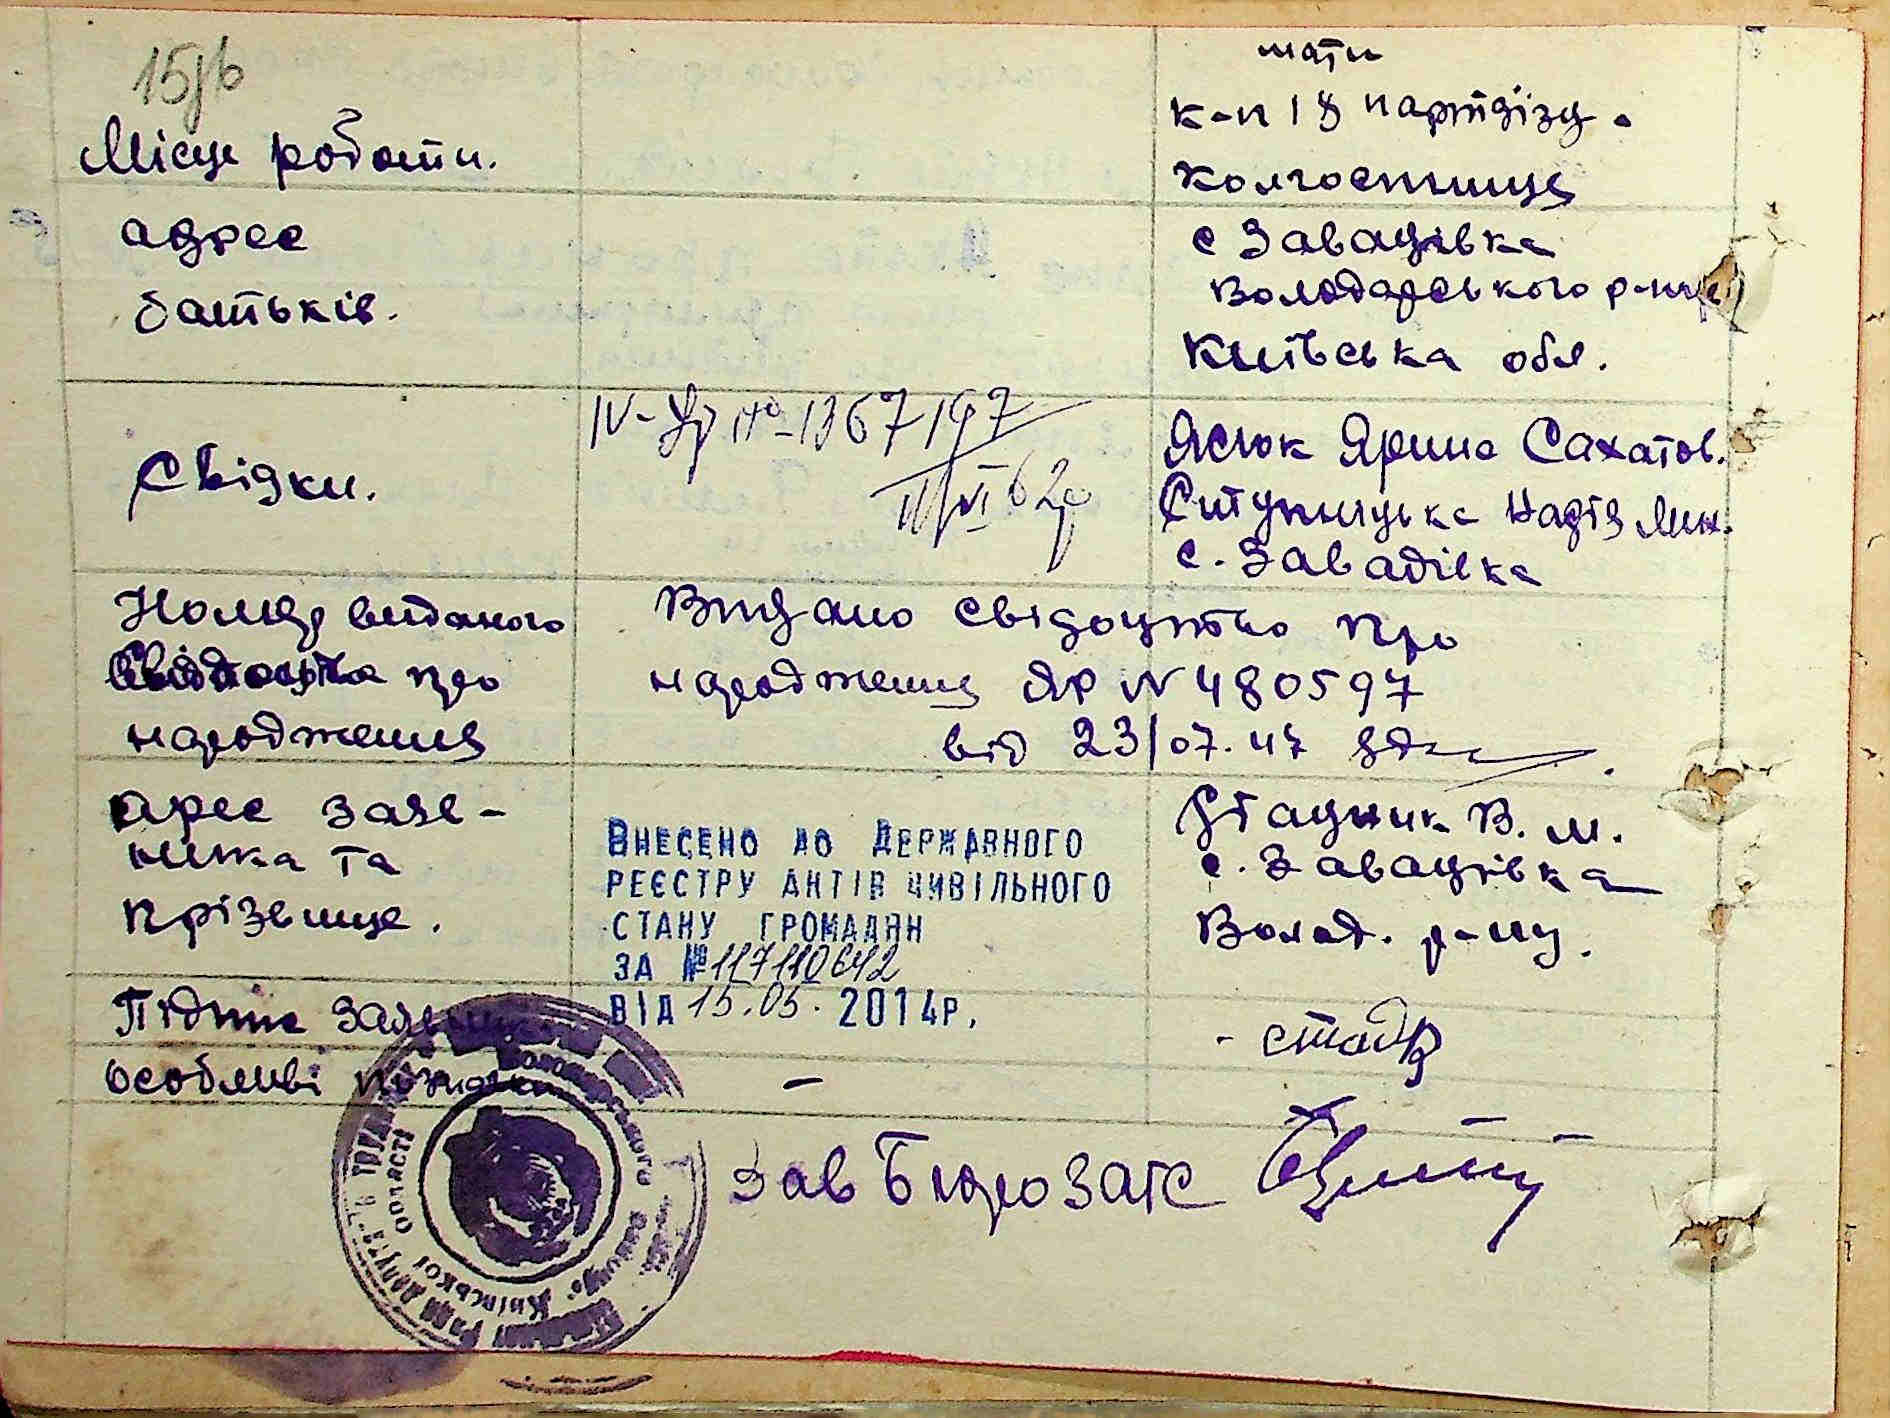 15зв
мати
Місце роботи.
адрес
батьків.
к-п 18 партз'їзду.
колгоспниця
с Завадівка
Володарського р-ну
Київська обл.
Свідки.
IV-УР № 1367197
11/VI 62р
Ясюк Ярина Сахатов.
Ситумницька Надія Мих.
с. Завадівка
Номер виданого
свідоцтва про
народження
Видано свідоцтво про
народження ЯР N 480597
від 23/07.47
адрес заяв-
ника та
прізвище.
ВНЕСЕНО ДО ДЕРЖАВНОГО
РЕЄСТРУ АКТІВ ЦИВІЛЬНОГО
СТАНУ ГРОМАДЯН
ЗА № 117110642
ВІД 15.05. 2014р.
Стадник В. М.
с. Завадівка
Волод. р-ну.
Підпис заявника
- стадн
особливі помітки
–
Зав Бюро ЗАГС
Володарського
Київської області